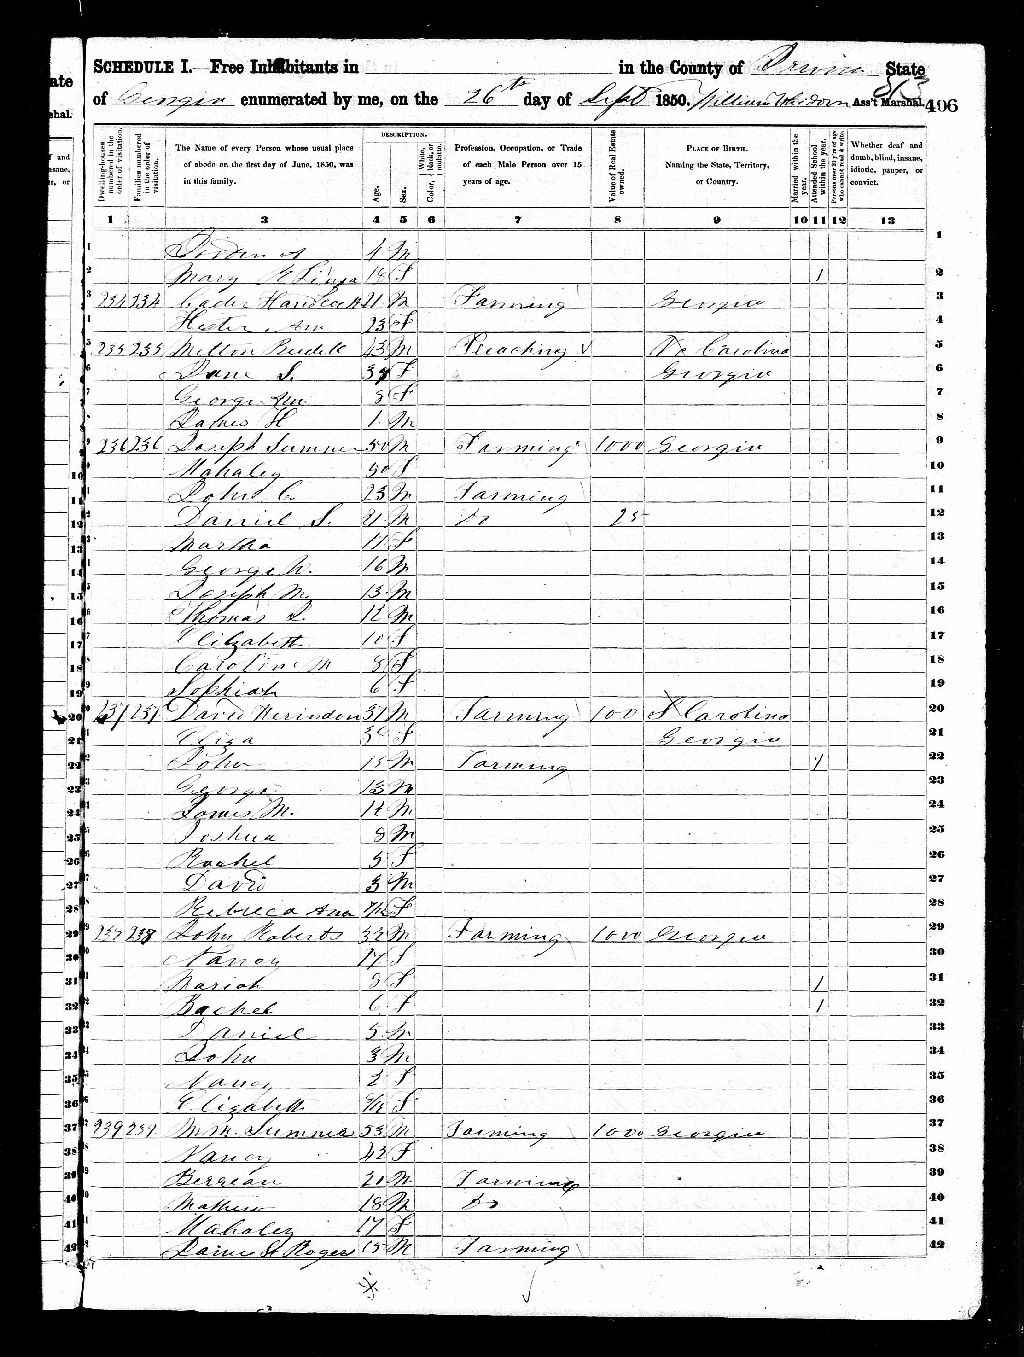 SCHEDULE I. Free Inhabitants in in the County of Irwin State
of Georgia enumerated by me, on the 26th day of Sept 1850. William Ass't Marshal. 406
Dwelling-houses numbered in the order of visitation.
Families numbered in the order of visitation.
The Name of every Person whose usual place of abode on the first day of June, 1850, was in this family.
DESCRIPTION.
Age.
Sex.
Color, White, black, or mulatto.
Profession, Occupation, or Trade of each Male Person over 15 years of age.
Value of Real Estate owned.
PLACE OF BIRTH. Naming the State, Territory, or Country.
Married within the year.
Attended School within the year.
Persons over 20 y'rs of age who cannot read & write.
Whether deaf and dumb, blind, insane, idiotic, pauper, or convict.
1 2 3 4 5 6 7 8 9 10 11 12 13
1 A 4 M 1
2 Mary 18 F 1 2
3 234 234 21 M Farming Georgia 3
4 Hester Ann 23 F 4
5 235 235 Milton 43 M Preaching No Carolina 5
6 Jane S. F Georgia 6
7 George Ann 8 F 7
8 James H 1 M 8
9 236 236 Joseph Sumner 50 M Farming 1000 Georgia 9
10 Mahaley 50 F 10
11 John C. 23 M Farming 11
12 Daniel S. 21 M Do 25 12
13 Martha 11 F 13
14 George W. 16 M 14
15 Joseph M. 13 M 15
16 Thomas L. 12 M 16
17 Elizabeth 10 F 17
18 Caroline M 8 F 18
19 Sophiah 6 F 19
20 237 237 David M Farming 100 S Carolina 20
21 Eliza F Georgia 21
22 John 15 M Farming 1 22
23 George 13 M 23
24 James M. M 24
25 Joshua 8 M 25
26 Rachel 5 F 26
27 David 3 M 27
28 Rebecca Ann F 28
29 238 John Roberts 32 M Farming 1000 Georgia 29
30 Nancy F 30
31 Mariah 8 F 1 31
32 Rachel 6 F 1 32
33 Daniel 5 M 33
34 John 3 M 34
35 Nancy 2 F 35
36 Elizabeth F 36
37 239 239 Sumner 53 M Farming 1000 Georgia 37
38 Nancy 42 F 38
39 M Farming 39
40 Mathew 18 M Do 40
41 Mahaley 17 F 41
42 Rogers 15 M Farming 42